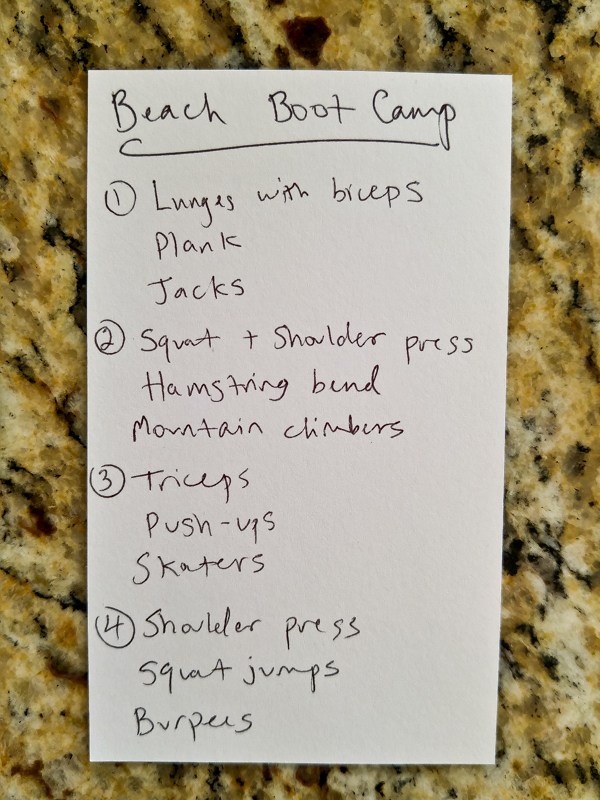 Beach Boot Camp
① Lunges with biceps
Plank
Jacks
② Squat + Shoulder press
Hamstring bend
Mountain climbers
③ Triceps
Push-ups
Skaters
④ Shoulder press
Squat jumps
Burpees